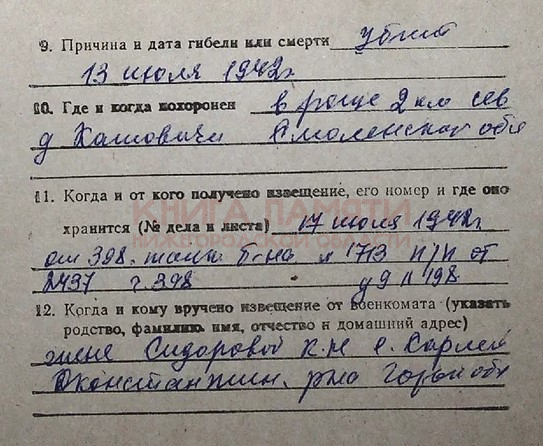 9. Причина и дата гибели или смерти убит
13 июля 1942г
10. Где и когда похоронен в роще 2 км сев
д Хатовичи Смоленская обл
11. Когда и от кого получено извещение, его номер и где оно
хранится (№ дела и листа) 17 июля 1942г.
КНИГА ПАМЯТИ
НИЖЕГОРОДСКОЙ ОБЛАСТИ
от 398. б-на № 1713 п/п от
2437 г. 398 д 9 л 198
12. Когда и кому вручено извещение от военкомата (указать
родство, фамилию, имя, отчество и домашний адрес)
жене Сидоровой К.Н с. Сарлей
Дконстантин. р-на Горьк обл